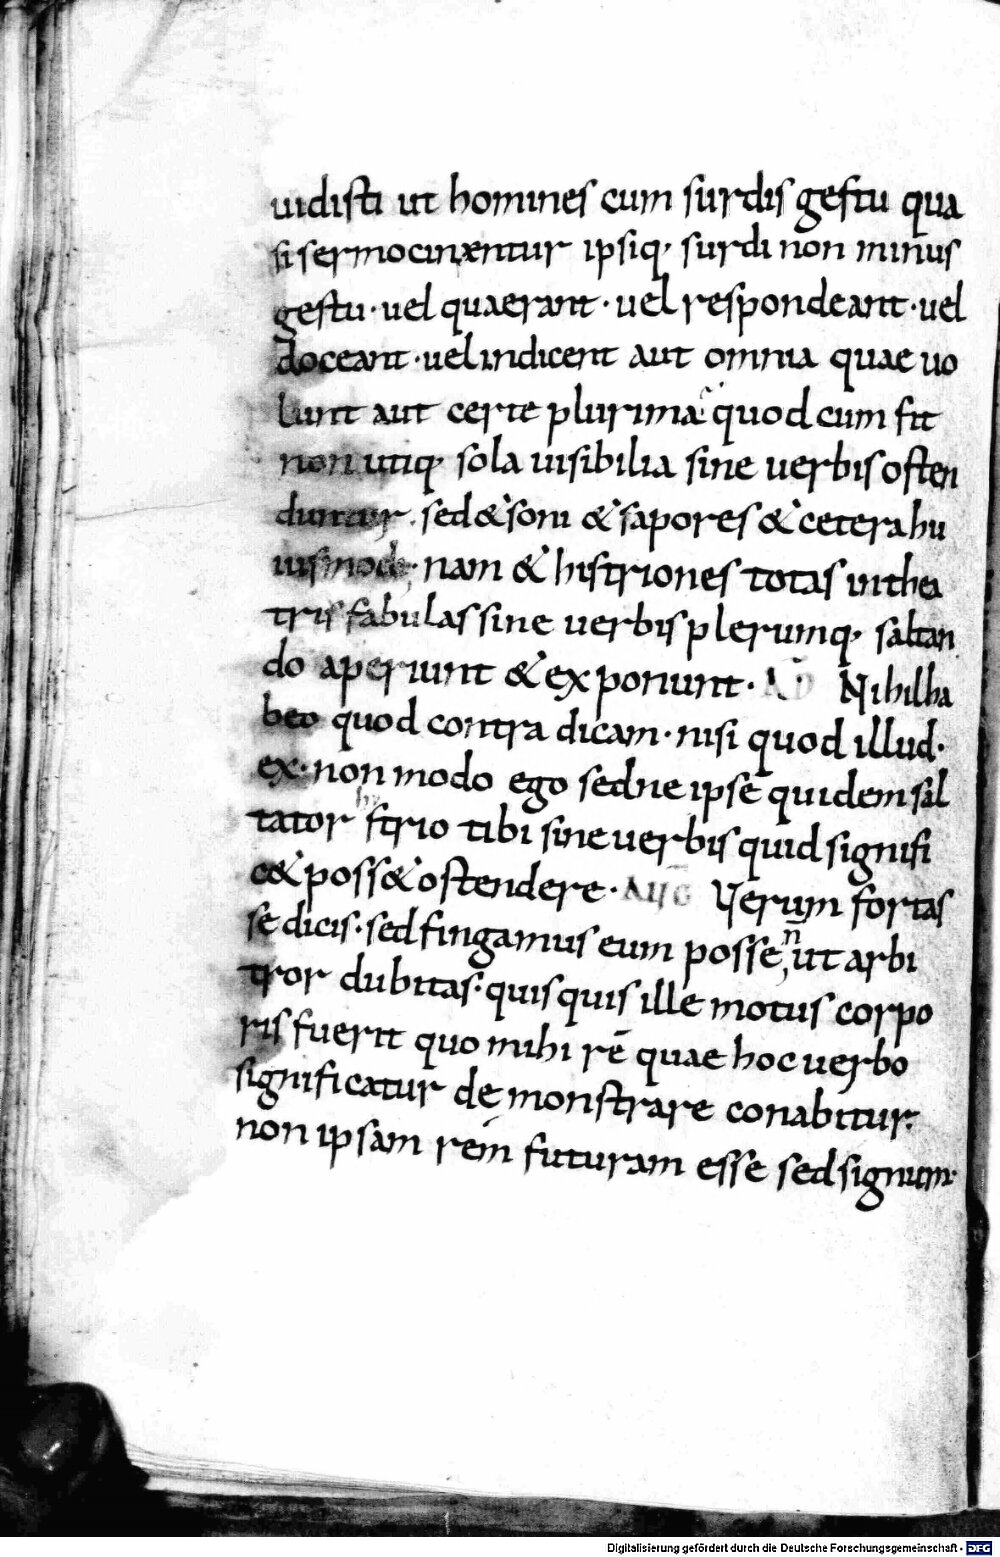 uidisti ut homines cum surdis gestu qua
si sermocinentur ipsiq; surdi non minus
gestu · uel quaerant · uel respondeant · uel
doceant · uel indicent aut omnia quae uo
lunt aut certe plurima quod cum fit
non utiq; sola uisibilia sine uerbis osten
duntur · sed & soni & sapores & cetera hu
iusmodi · nam & histriones totas in thea
tris fabulas sine uerbis plerumq; saltan
do aperiunt & exponunt · AD Nihil ha
beo quod contra dicam · nisi quod illud ·
ex · non modo ego sed ne ipse quidem sal
tator histrio tibi sine uerbis quid signifi
c& poss& ostendere · AUG Verum fortas
se dicis · sed fingamus eum posse, n̄ ut arbi
tror dubitas · quisquis ille motus corpo
ris fuerit quo mihi rē quae hoc uerbo
significatur demonstrare conabitur ·
non ipsam rem futuram esse sed signum ·
Digitalisierung gefördert durch die Deutsche Forschungsgemeinschaft - DFG